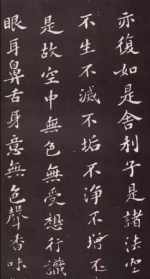 亦復如是舍利子是諸法空
不生不滅不垢不淨不增不
是故空中無色無受想行識
眼耳鼻舌身意無色聲香味